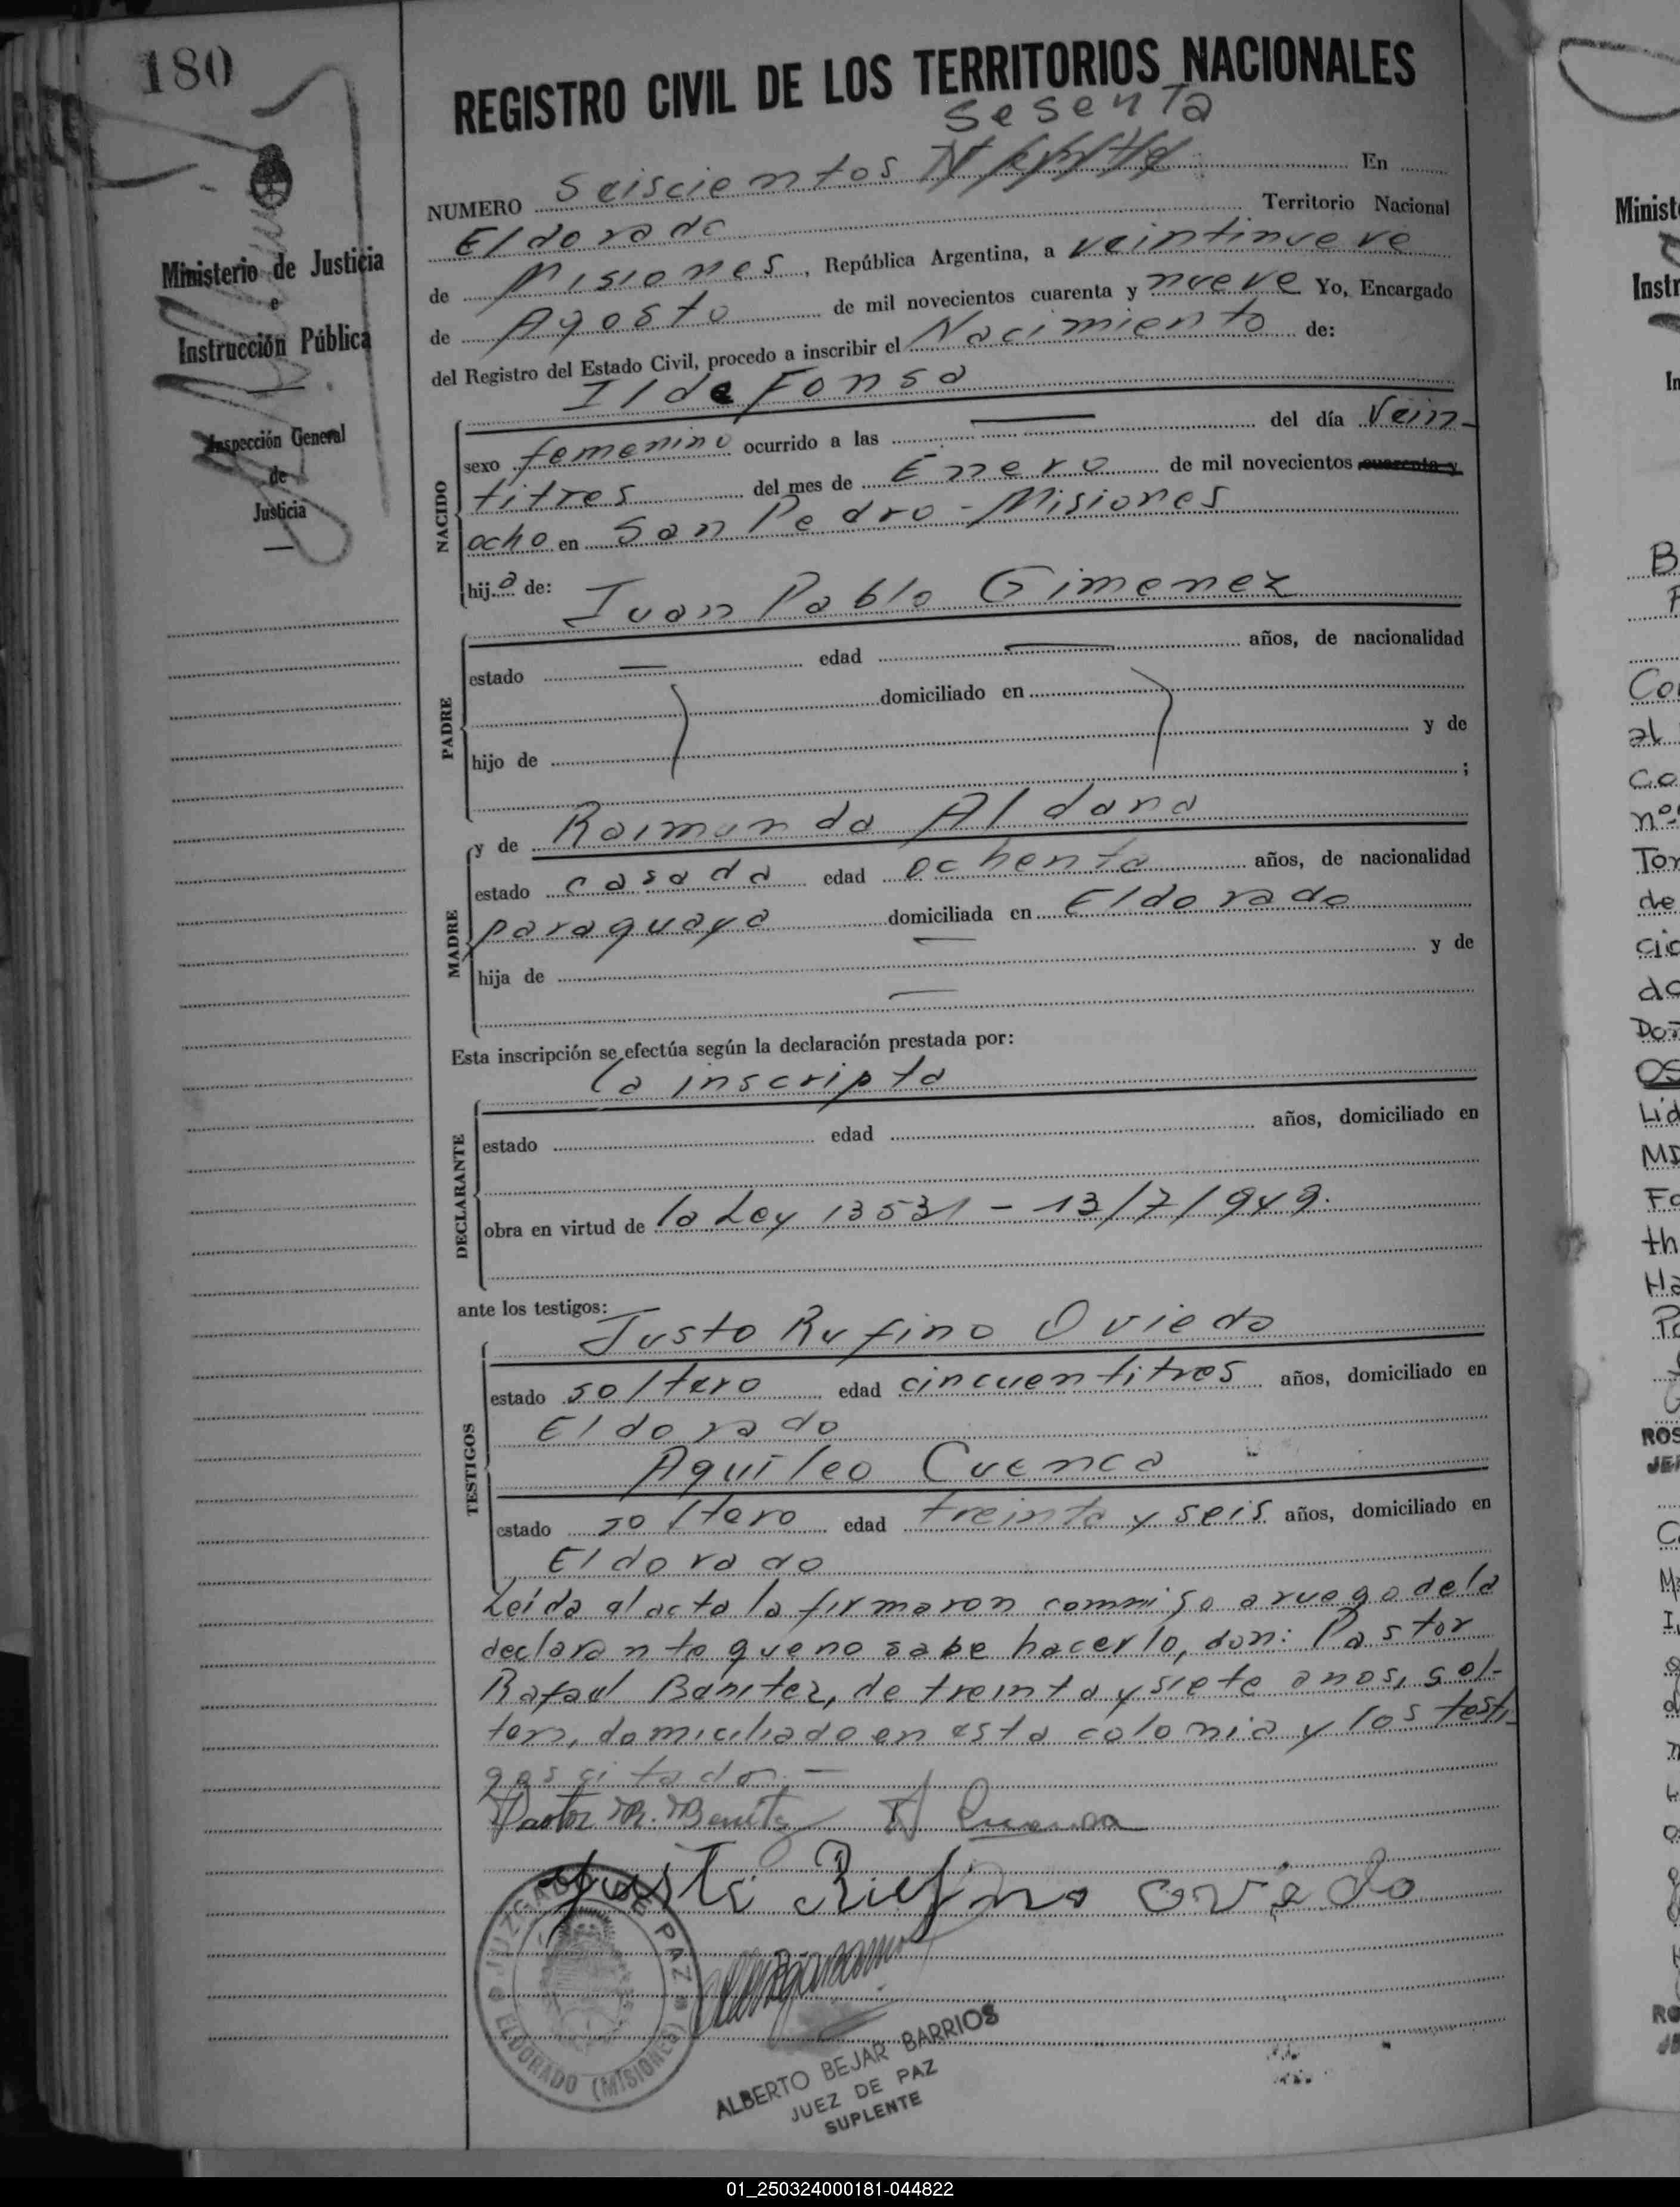 180
REGISTRO CIVIL DE LOS TERRITORIOS NACIONALES
Sesenta
NUMERO Seiscientos En
Eldorado Territorio Nacional
de Misiones, República Argentina, a veintinueve
de Agosto de mil novecientos cuarenta y nueve Yo, Encargado
del Registro del Estado Civil, procedo a inscribir el Nacimiento de:
Ministerio de Justicia
e
Instrucción Pública
Inspección General
de
Justicia
NACIDO
Ildefonsa
sexo femenino ocurrido a las del día Vein-
titres del mes de Enero de mil novecientos cuarenta y
ocho en San Pedro - Misiones
hija de: Juan Pablo Gimenez
PADRE
estado edad años, de nacionalidad
domiciliado en
hijo de y de
;
y de Raimunda Aldana
MADRE
estado casada edad ochenta años, de nacionalidad
paraguaya domiciliada en Eldorado
hija de y de
Esta inscripción se efectúa según la declaración prestada por:
la inscripta
DECLARANTE
estado edad años, domiciliado en
obra en virtud de la Ley 13531 - 13/7/949.
ante los testigos:
Justo Rufino Oviedo
TESTIGOS
estado soltero edad cincuentitres años, domiciliado en
Eldorado
Aquileo Cuenca
estado soltero edad treinta y seis años, domiciliado en
Eldorado
Leída al acta la firmaron conmigo a ruego de la
declarante que no sabe hacerlo, don: Pastor
Rafael Benitez, de treinta y siete anos, sol-
tero, domiciliado en esta colonia y los testi-
gos citado. -
Pastor R. Benitez A Cuenca
Justo Rufino oviedo
JUZGADO DE PAZ
ELDORADO (MISIONES)
ALBERTO BEJAR BARRIOS
JUEZ DE PAZ
SUPLENTE
01_250324000181-044822